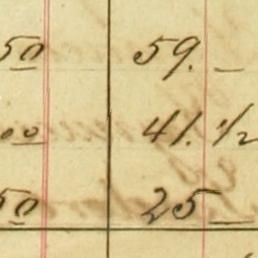 50 59. _
00 41. 1/2
50 25 _